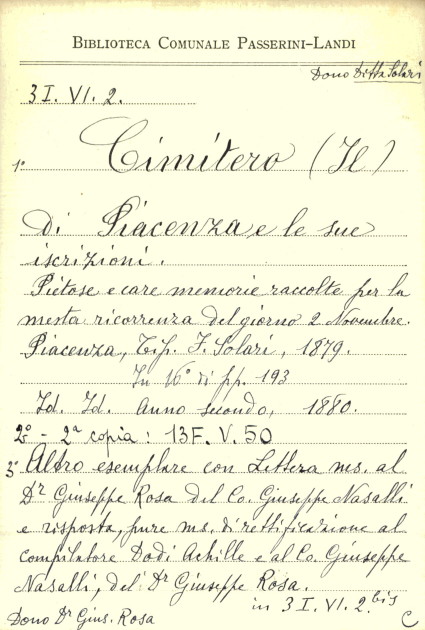 BIBLIOTECA COMUNALE PASSERINI-LANDI
Dono Ditta Solari
3 I. VI. 2.
1° Cimitero (Il)
di Piacenza e le sue
iscrizioni.
Pietose e care memorie raccolte per la
mesta ricorrenza del giorno 2 Novembre.
Piacenza, Tip. F. Solari, 1879.
In 16° di pp. 193
Id. Id. Anno secondo, 1880.
2° - 2ª copia: 13F. V. 50
3° Altro esemplare con Lettera ms. al
Dr Giuseppe Rosa del Co. Giuseppe Nasalli
e risposta, pure ms. di rettificazione al
compilatore Dodi Achille e al Co. Giuseppe
Nasalli, del Dr Giuseppe Rosa.
in 3 I. VI. 2. bis
Dono Dr Gius. Rosa
C